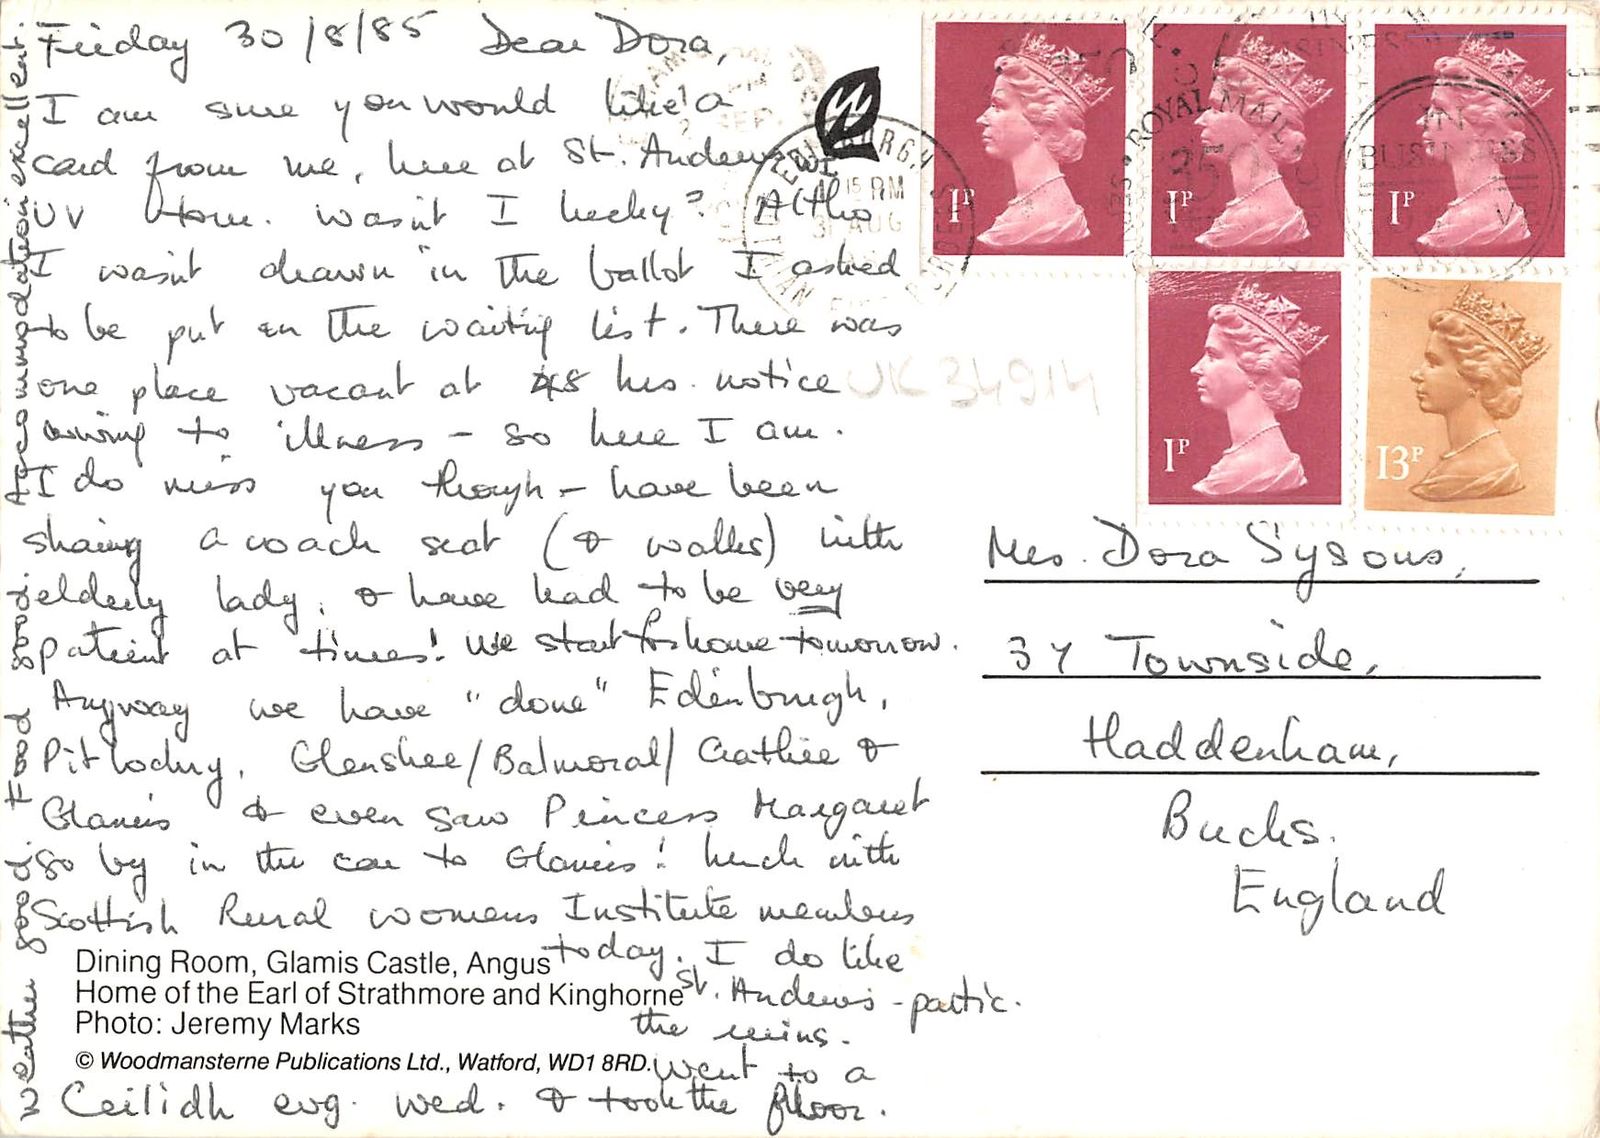 Friday 30/8/85 Dear Dora,
I am sure you would like a
card from me, here at St. Andrews WI
UV tour. Wasn't I lucky? Altho
I wasn't drawn in the ballot I asked
to be put on the waiting list. There was
one place vacant at 48 hrs. notice
owing to illness – so here I am.
I do miss you though – have been
sharing a coach seat (& walks) with
elderly lady, & have had to be very
patient at times! We start for home tomorrow.
Anyway we have "done" Edinburgh,
Pitlochry, Glenshee/Balmoral/Crathie &
Glamis & even saw Princess Margaret
go by in the car to Glamis! Lunch with
Scottish Rural Womens Institute members
today. I do like
St. Andrews - partic.
the ruins.
Went to a
Ceilidh evg. Wed. & took the floor.
Weather good. Food good. Accommodation excellent.
Dining Room, Glamis Castle, Angus
Home of the Earl of Strathmore and Kinghorne
Photo: Jeremy Marks
© Woodmansterne Publications Ltd., Watford, WD1 8RD.
EDINBURGH
15 PM
31 AUG
ROYAL MAIL
350
IN
BUSINESS
1P
1P
1P
1P
13P
UK34914
Mrs. Dora Sysons,
37 Townside,
Haddenham,
Bucks.
England